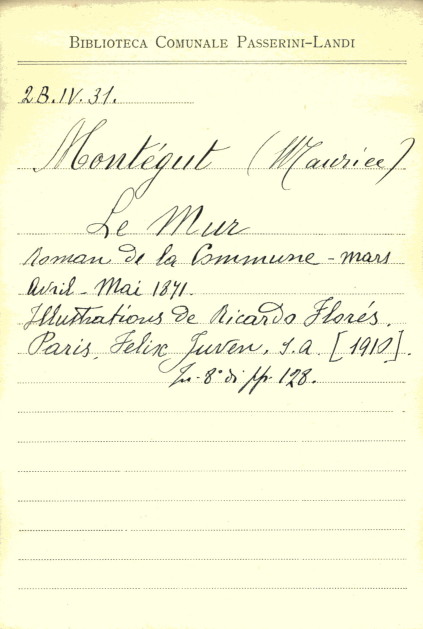 BIBLIOTECA COMUNALE PASSERINI-LANDI
2B.IV.31.
Montégut (Maurice)
Le Mur
roman de la Commune - mars
Avril - Mai 1871.
Illustrations de Ricardo Florés.
Paris, Felix Juven, s.a. [1910].
In-8° di pp. 128.